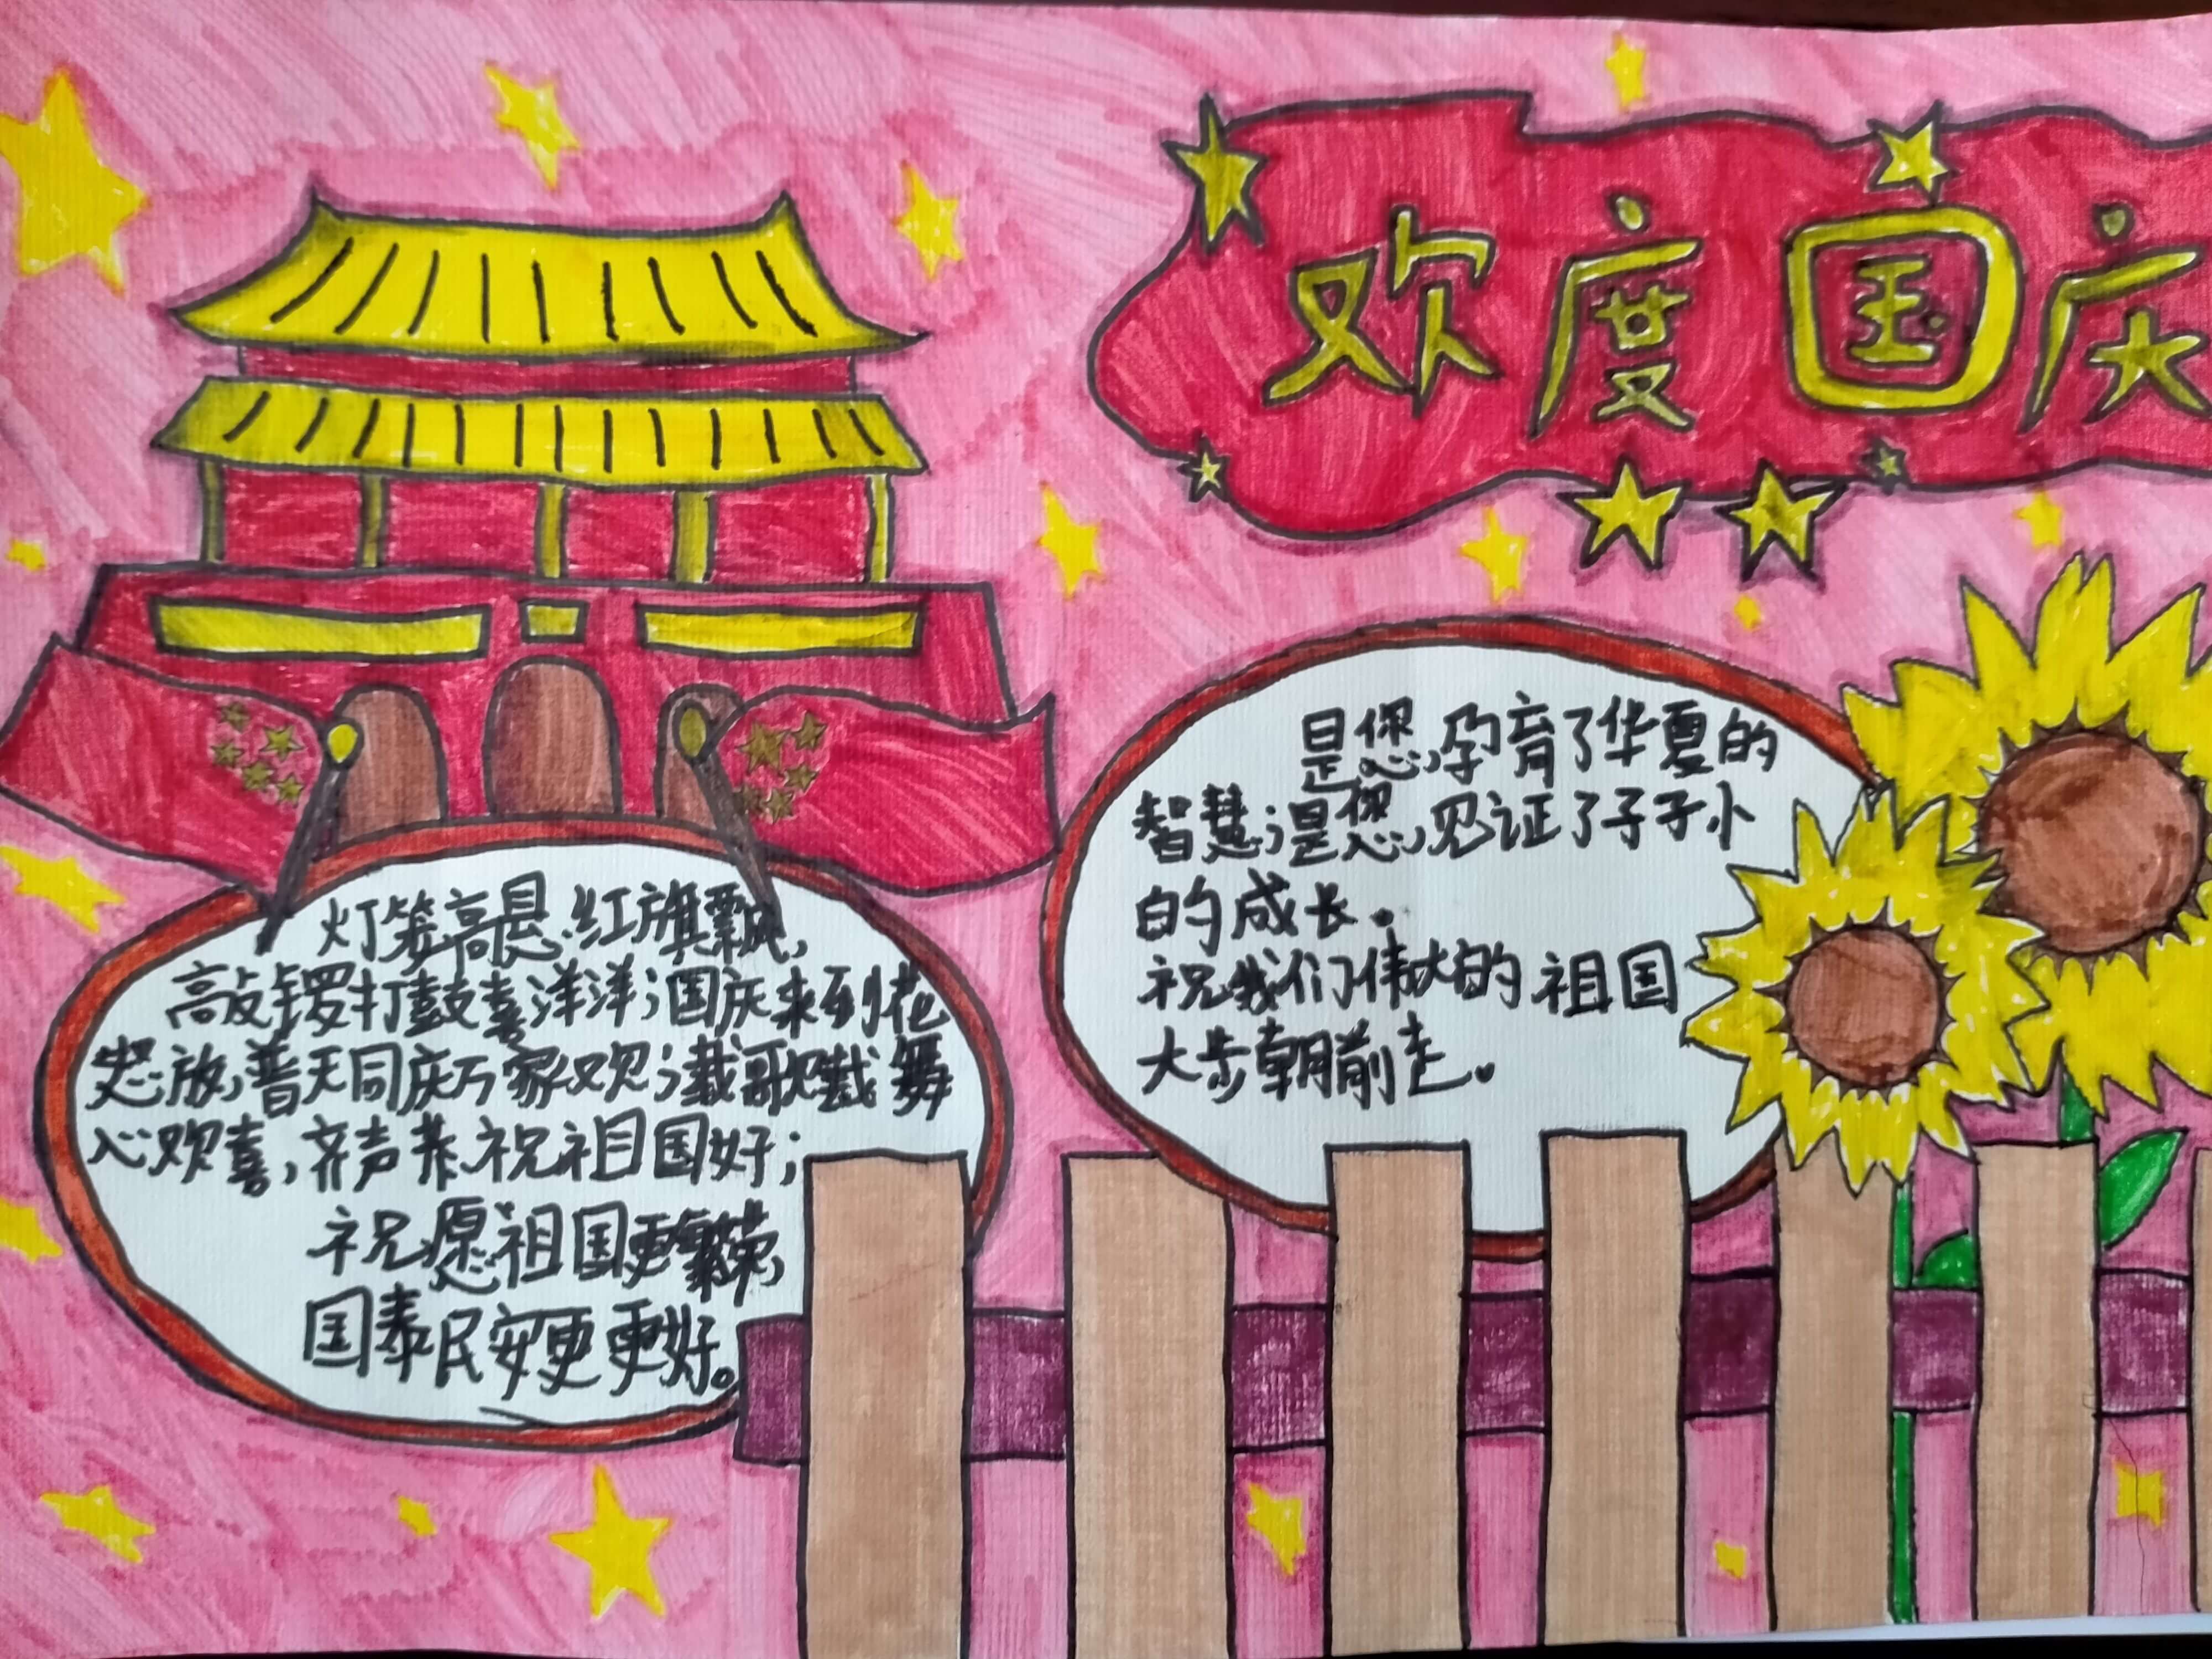 欢度国庆
灯笼高悬红旗飘,
高敲锣打鼓喜洋洋;国庆来到花
怒放,普天同庆万家欢;载歌载舞
心欢喜,齐声恭祝祖国好;
祝愿祖国更繁荣,
国泰民安更更好。
是您,孕育了华夏的
智慧;是您,见证了子子小
的成长。
祝我们伟大的祖国
大步朝前走。